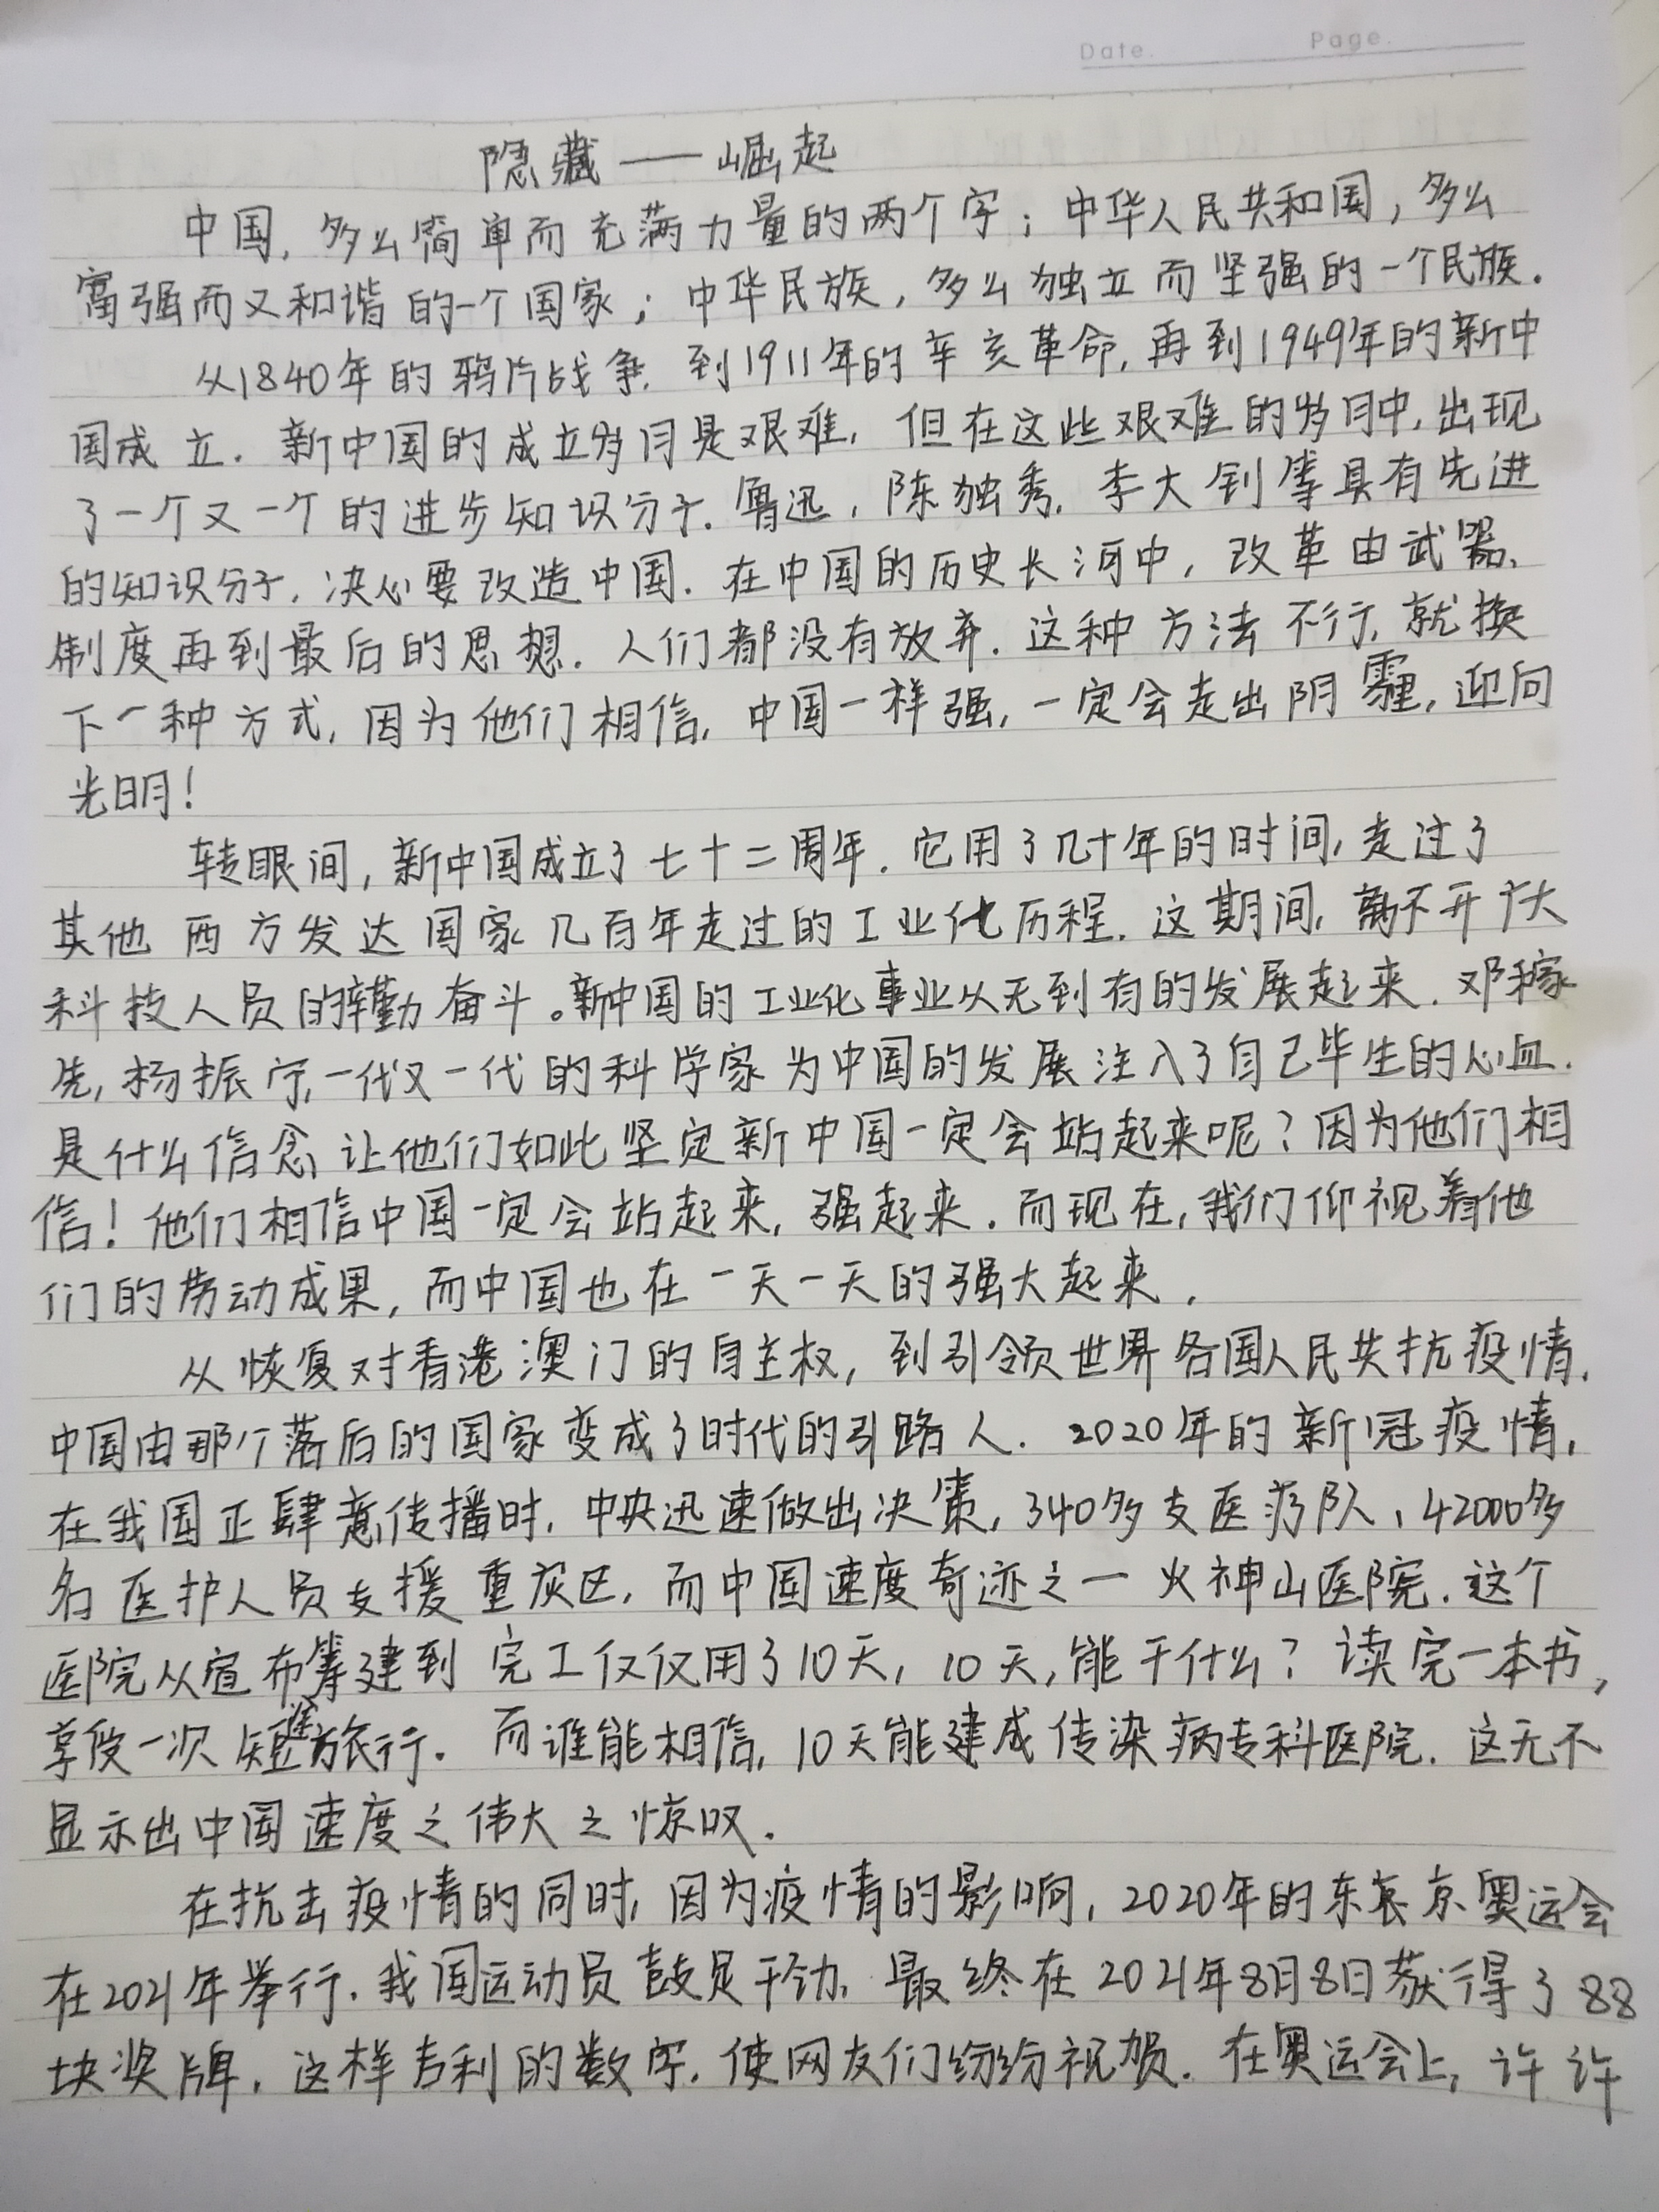 Date. Page.
隐藏——崛起
中国,多么简单而充满力量的两个字;中华人民共和国,多么
富强而又和谐的一个国家;中华民族,多么独立而坚强的一个民族.
从1840年的鸦片战争,到1911年的辛亥革命,再到1949年的新中
国成立.新中国的成立岁月是艰难,但在这些艰难的岁月中,出现
了一个又一个的进步知识分子.鲁迅,陈独秀,李大钊等具有先进
的知识分子,决心要改造中国.在中国的历史长河中,改革由武器、
制度再到最后的思想.人们都没有放弃.这种方法不行,就换
下一种方式,因为他们相信,中国一样强,一定会走出阴霾,迎向
光明!
转眼间,新中国成立了七十二周年.它用了几十年的时间,走过了
其他西方发达国家几百年走过的工业化历程.这期间,离不开广大
科技人员的辛勤奋斗。新中国的工业化事业从无到有的发展起来.邓稼
先,杨振宁,一代又一代的科学家为中国的发展注入了自己毕生的心血.
是什么信念,让他们如此坚定新中国一定会站起来呢?因为他们相
信!他们相信中国一定会站起来,强起来.而现在,我们仰视着他
们的劳动成果,而中国也在一天一天的强大起来.
从恢复对香港澳门的自主权,到引领世界各国人民共抗疫情.
中国由那个落后的国家变成了时代的引路人.2020年的新冠疫情,
在我国正肆意传播时,中央迅速做出决策,340多支医疗队、42000多
名医护人员支援重灰区,而中国速度奇迹之一火神山医院.这个
医院从宣布筹建到完工仅仅用了10天,10天,能干什么?读完一本书,
享受一次短途旅行.而谁能相信,10天能建成传染病专科医院.这无不
显示出中国速度之伟大之惊叹.
在抗击疫情的同时,因为疫情的影响,2020年的东京奥运会
在2021年举行.我国运动员鼓足干劲,最终在2021年8月8日获得了88
块奖牌.这样吉利的数字,使网友们纷纷祝贺.在奥运会上,许许